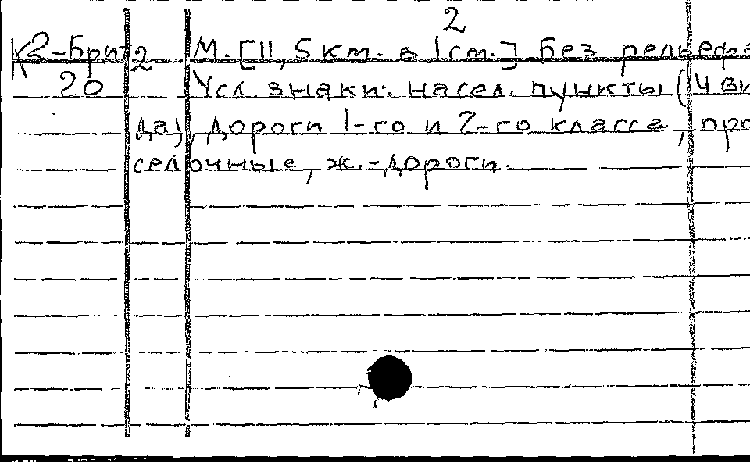 2
К2-Брит 2 М. [11,5 км. в 1 см.] Без рельефа
20 Усл. знаки: насел. пункты (4 ви
да), дороги 1-го и 2-го класса, про
селочные, ж.-дороги.